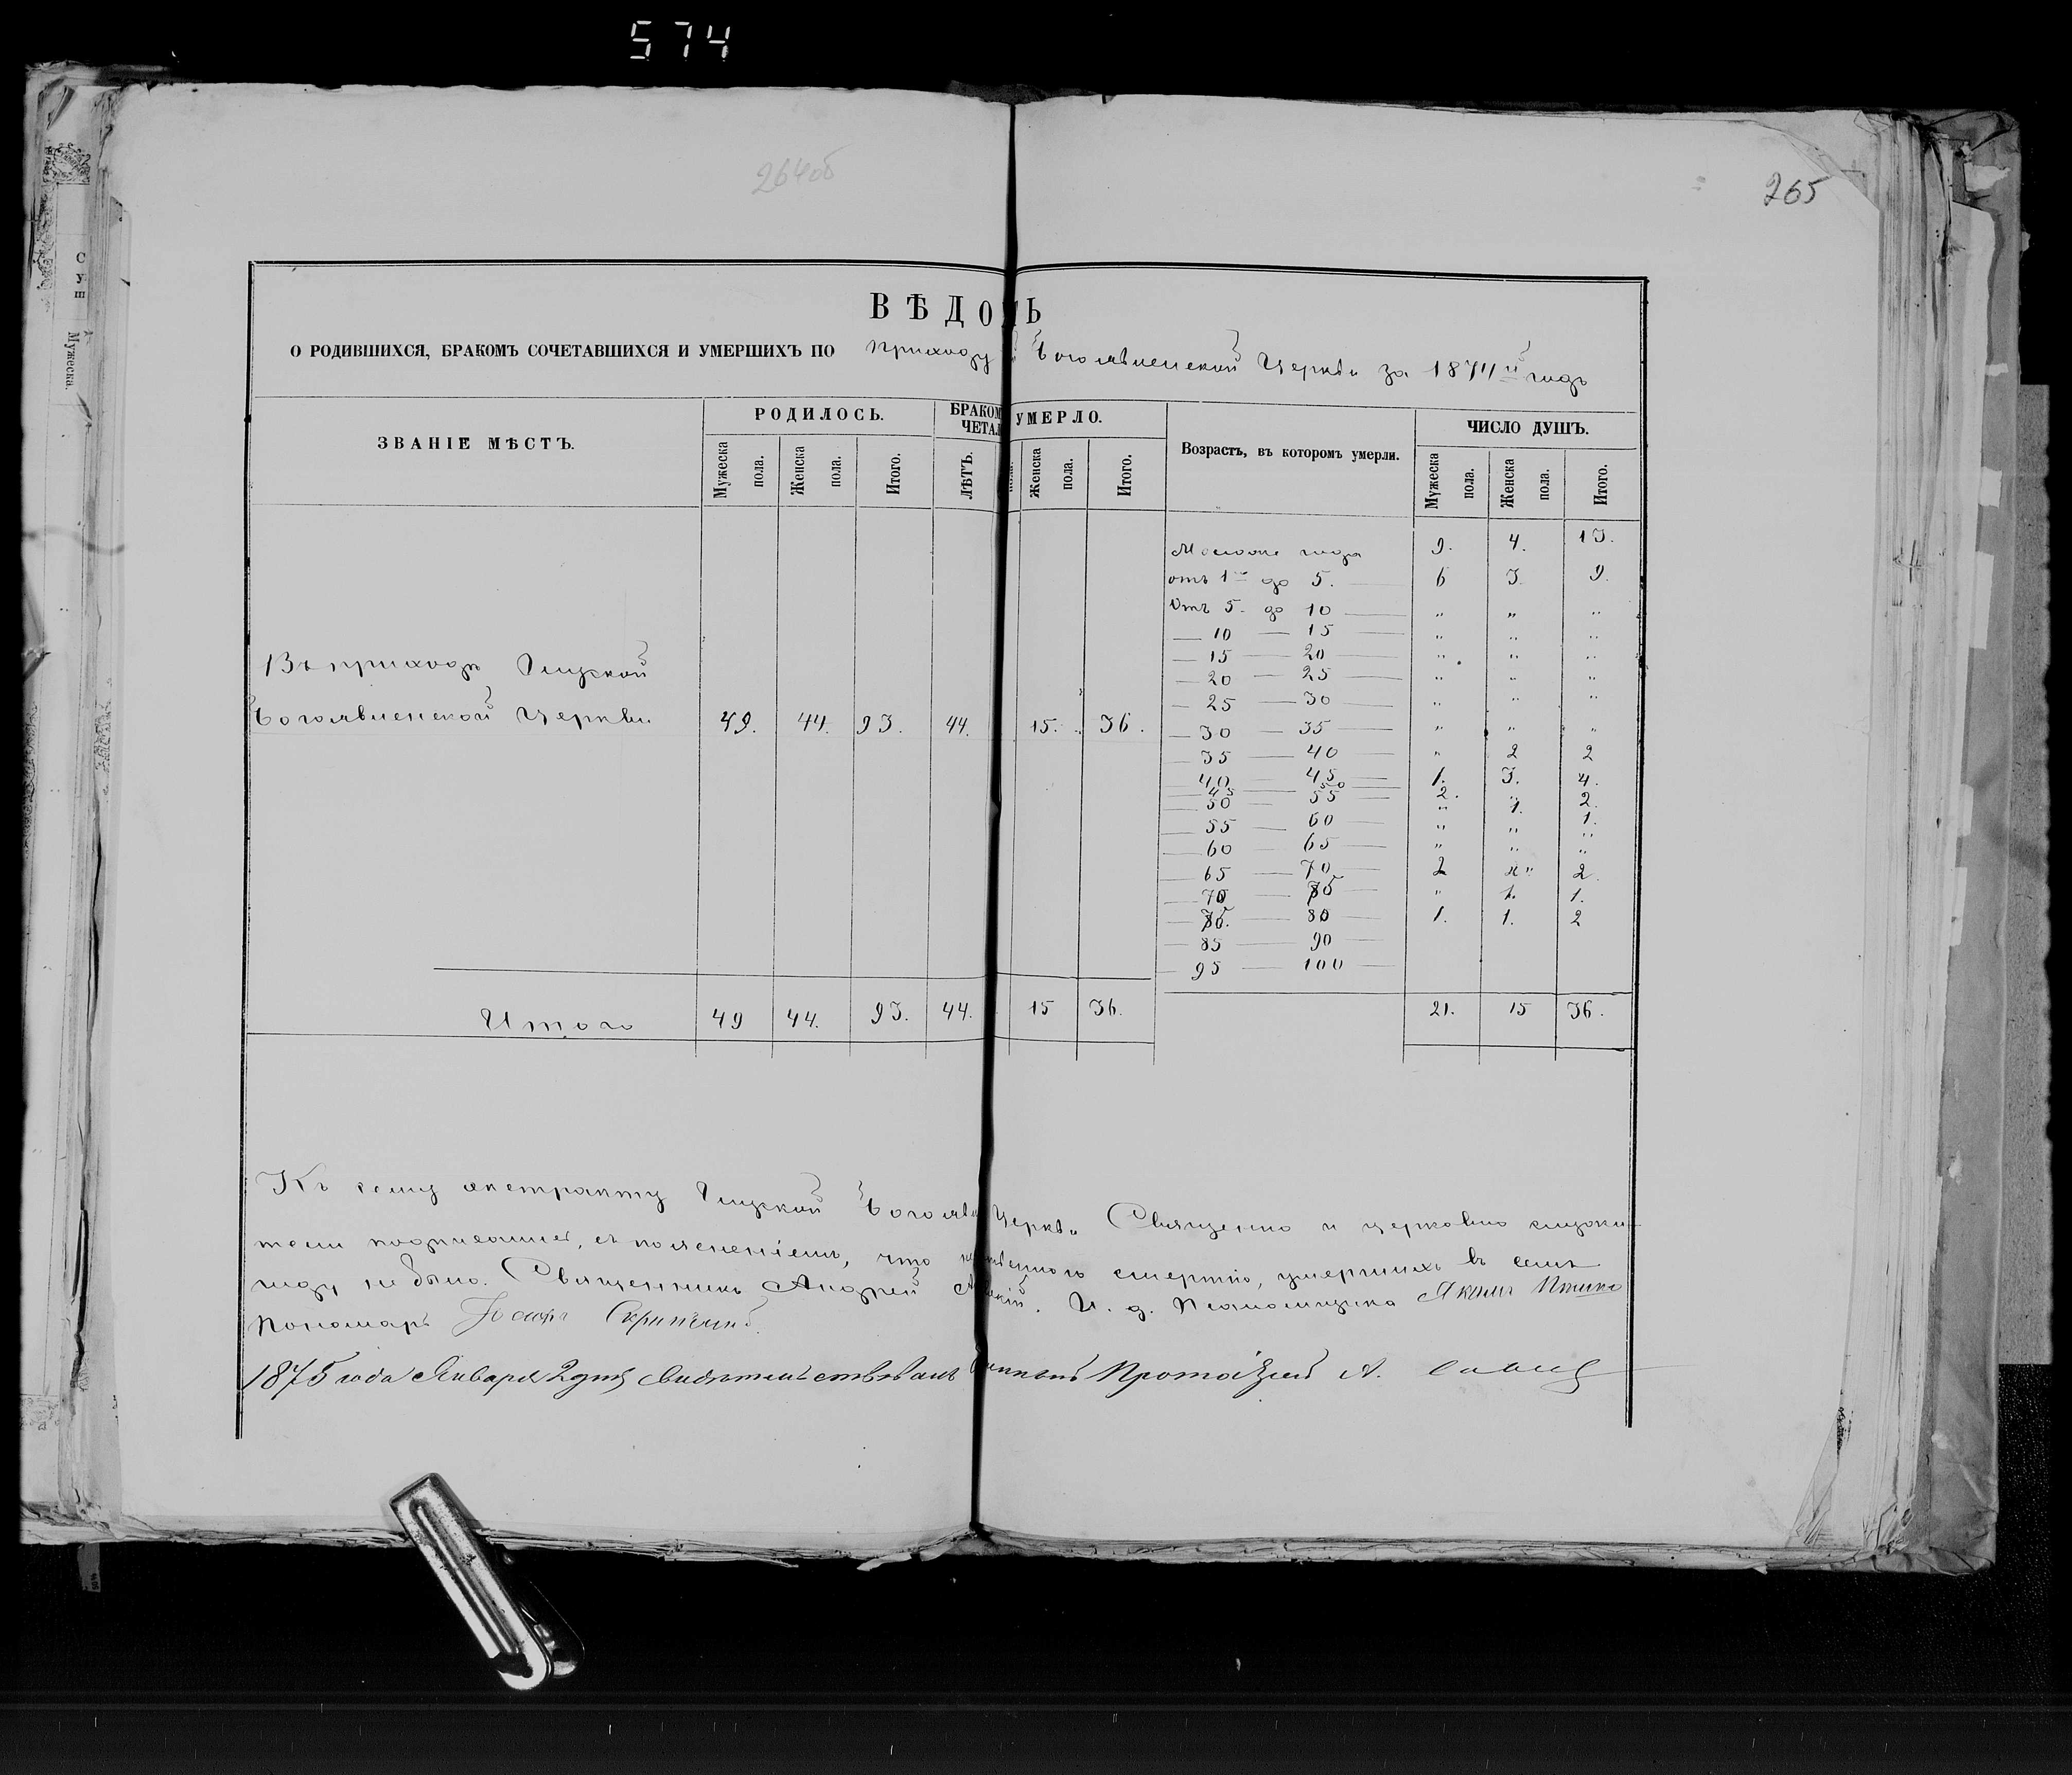 574
264об
265
ВѢДО Ь
О РОДИВШИХСЯ, БРАКОМЪ СОЧЕТАВШИХСЯ И УМЕРШИХЪ ПО приходу Богоявленской Церкви за 1874й годъ
ЗВАНІЕ МѢСТЪ. РОДИЛОСЬ. БРАКОМ ЧЕТАЛ УМЕРЛО. Возрастъ, въ которомъ умерли. ЧИСЛО ДУШЪ.
Мужеска пола. Женска пола. Итого. ЛѢТЪ. Женска пола. Итого. Мужеска пола. Женска пола. Итого.
Моложе года 9. 4. 13.
отъ 1го до 5. 6 3 9.
Отъ 5. до 10 " " "
10 15 " " "
15 20 " " "
20 25 " " "
25 30 " " "
Въ приходѣ Слуцкой
Богоявленской Церкви 49. 44. 93. 44. 15. 36.
30 35 " " "
35 40 " 2 2
40 45 1. 3. 4.
45 50 2. " 2.
50 55 " 1. 1.
55 60 " " "
60 65 " " "
65 70 2 " 2.
70 75 " 1. 1.
75. 80 1. 1. 2
85 90
95 100
Итого 49 44. 93. 44. 15 36. 21. 15 36.
Къ сему экстракту Слуцкой Богоявл Церкви Священно и церковно служи-
тели подписались, съ поясненіемъ, что смертію, умершихъ въ семъ
году не было. Священникъ Андрей И. д. Псаломщика
Пономарь Іосифъ
1875 года Января 2 дня свидѣтельствовалъ Протоіерей А.
С
у
ш
Мужеска.